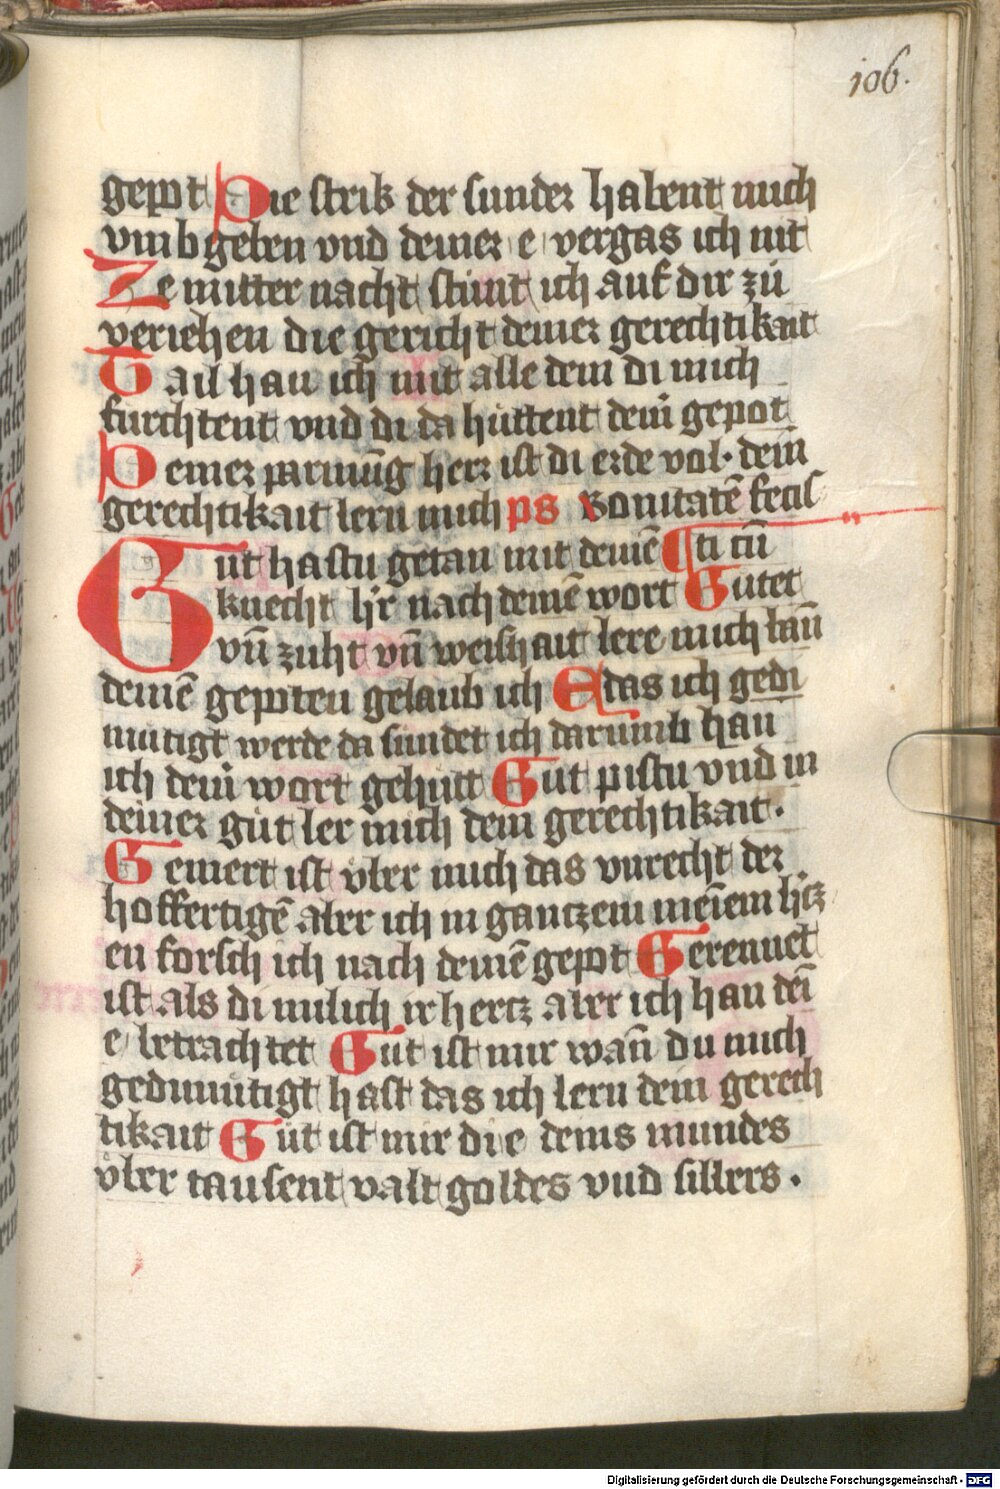 106.
gepot Die strik der sunder habent mich
vmbgeben vnd deiner e vergas ich nit
Ze mitter nacht stůnt ich auf dir zů
veriehen die gericht deiner gerechtikait
Tail han ich mit alle den di mich
furchtent vnd di da hůttent dein gepot
Deiner parmūg herr ist di erde vol· dein
gerechtikait lern mich ps Bonitatē fecis
Gut hastu getan mit deinē ¶ti cū
knecht h̄r nach deinē wort Gutet
vn̄ zuht vn̄ weishait lere mich wan̄
deinē gepoten gelaub ich E das ich gedi
mutigt werde da sundet ich darumb han
ich dein wort gehůtt Gut pistu vnd in
deiner gůt ler mich dein gerechtikait.
Gemert ist vber mich das vnrecht der
hoffertigē aber ich in gantzem meinem h̄tz
en forsch ich nach deinē gepot Gerennet
ist als di milich ir hertz aber ich han dei
e betrachtet Gut ist mir wan̄ du mich
gedimutigt hast das ich lern dein gerech
tikait Gut ist mir die e deins mundes
vber tausent valt goldes vnd silbers.
Digitalisierung gefördert durch die Deutsche Forschungsgemeinschaft - DFG